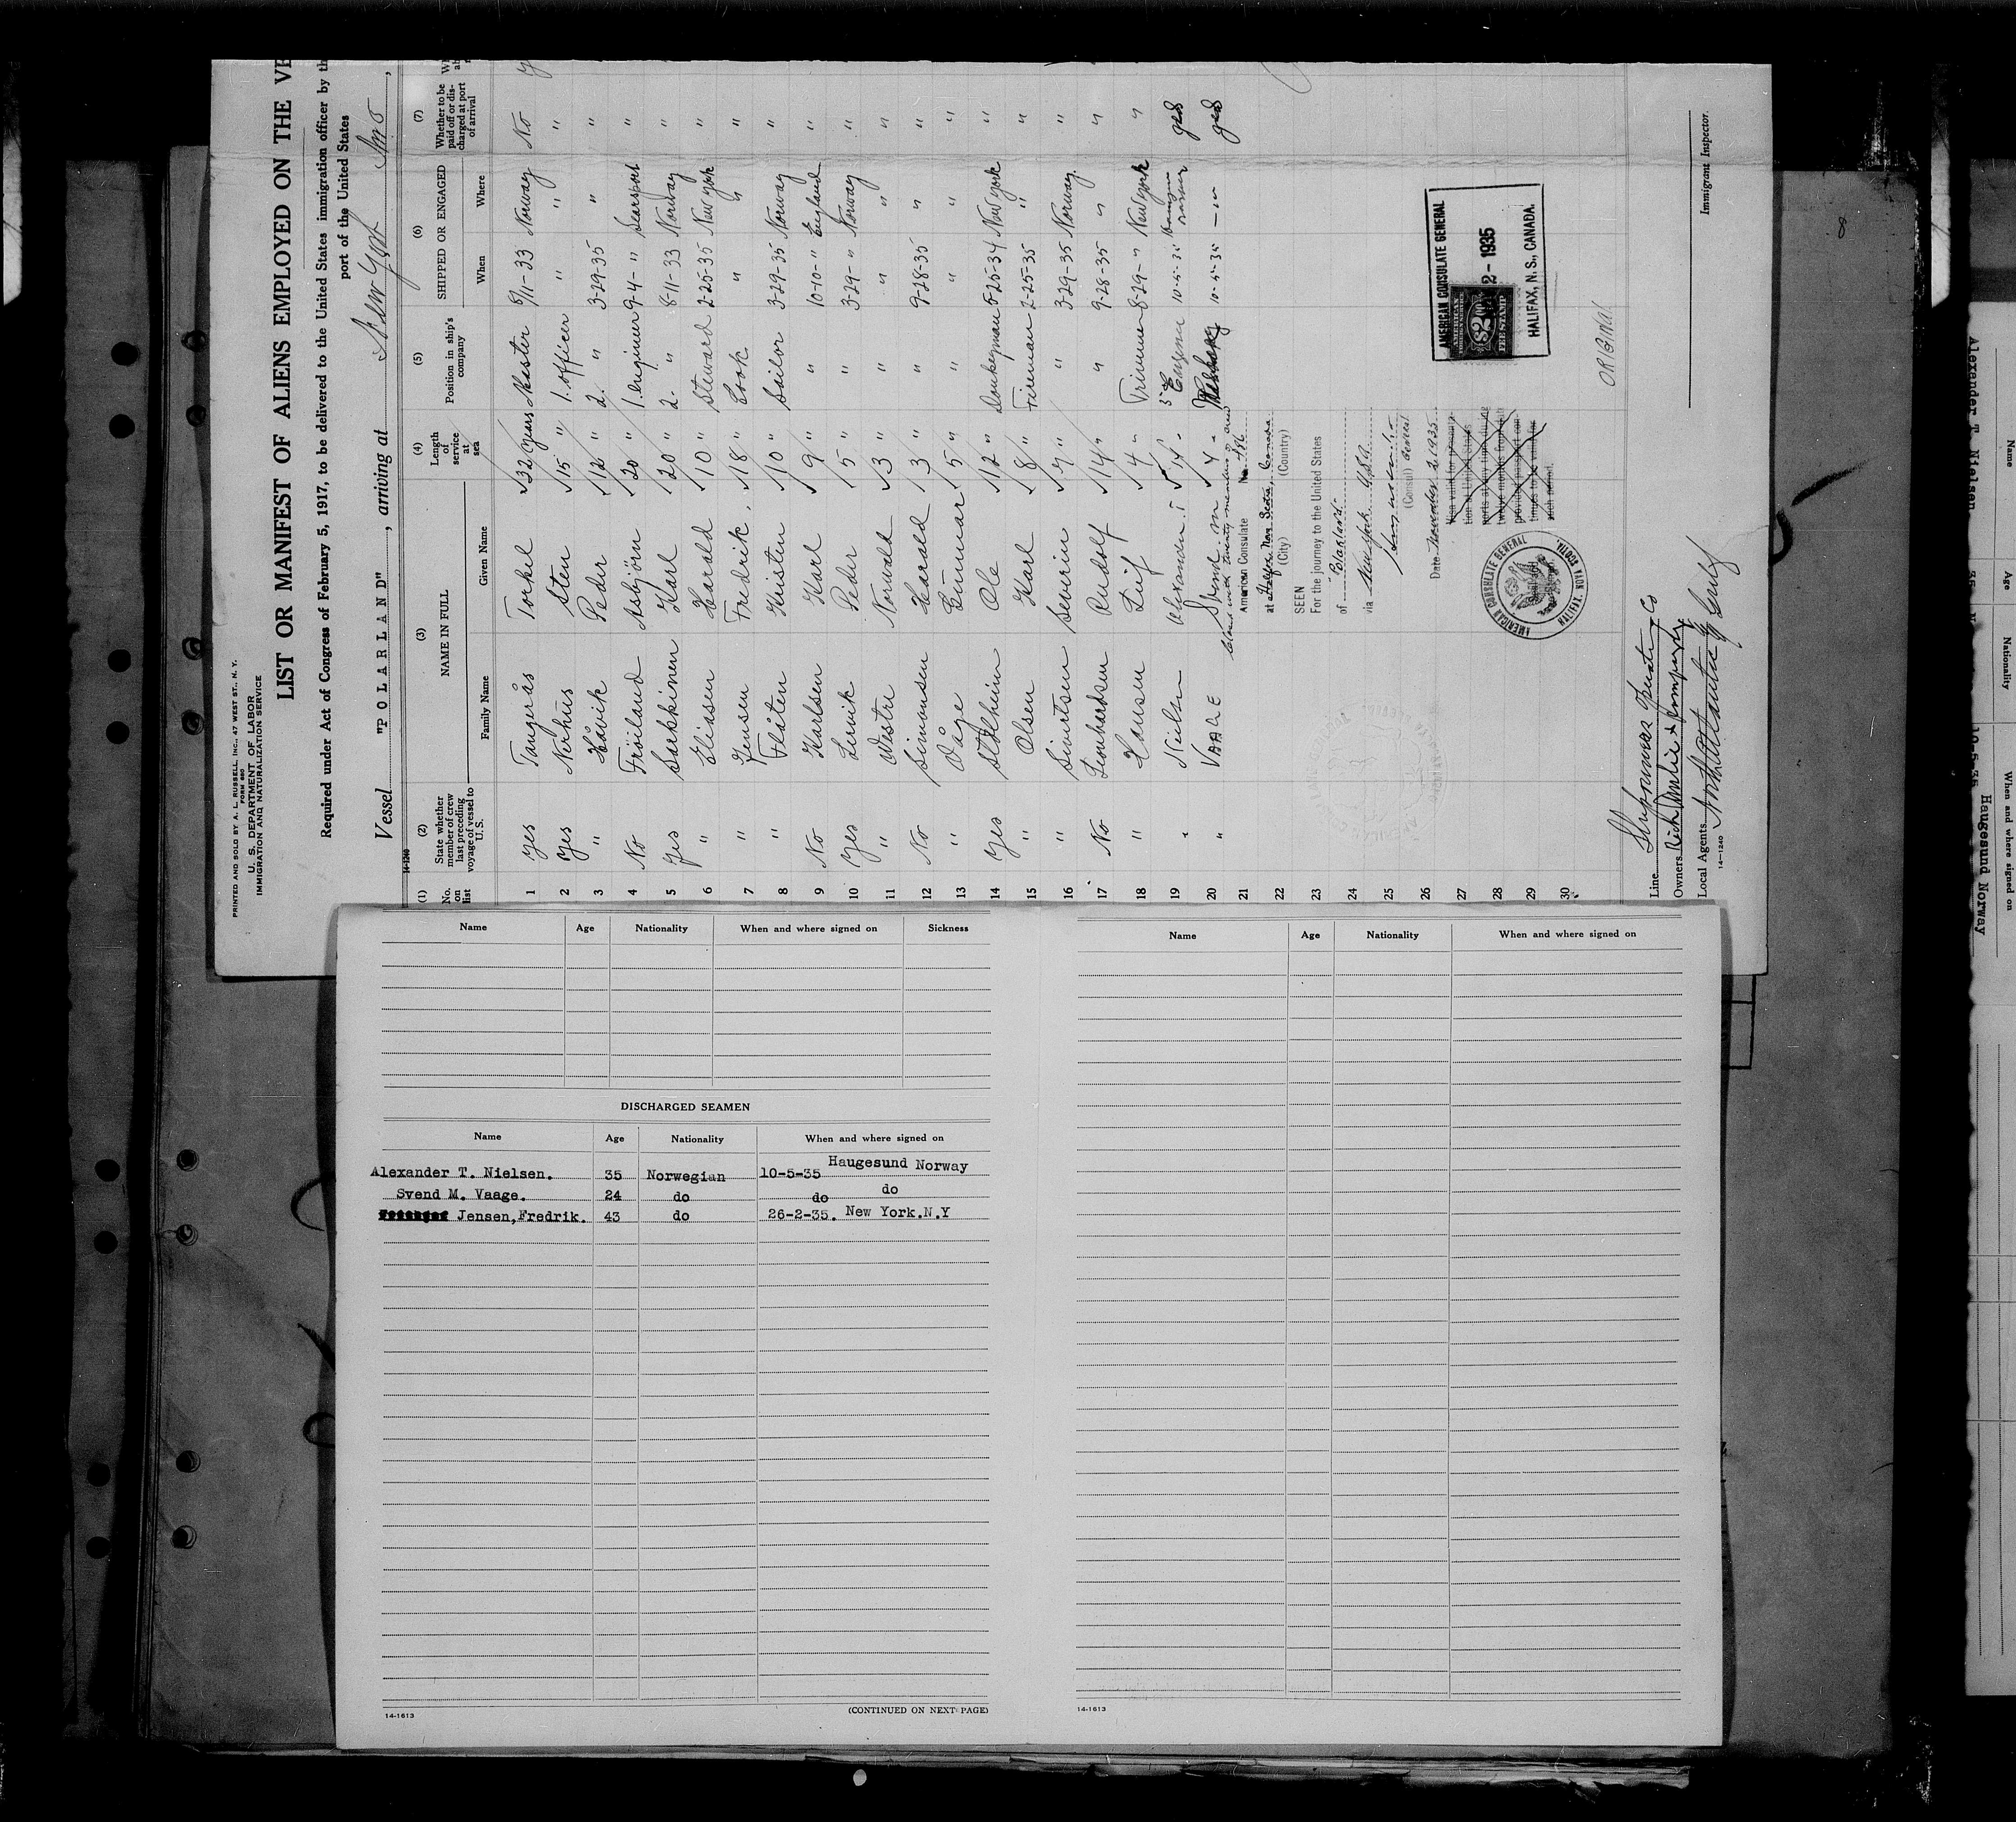 PRINTED AND SOLD BY A. L. RUSSELL, INC., 47 WEST ST., N. Y.
FORM 680
U. S. DEPARTMENT OF LABOR
IMMIGRATION AND NATURALIZATION SERVICE
LIST OR MANIFEST OF ALIENS EMPLOYED ON THE VE
Required under Act of Congress of February 5, 1917, to be delivered to the United States immigration officer by th
port of the United States
Vessel "POLARLAND", arriving at New York
14-1240
(1) (2) (3) (4) (5) (6) (7)
No. on list
State whether member of crew last preceding voyage of vessel to U.S.
NAME IN FULL
Family Name Given Name
Length of service at sea
Position in ship's company
SHIPPED OR ENGAGED
When Where
Whether to be paid off or discharged at port of arrival
1 Yes Tangerås Torkel 32 years Master 8/11-33 Norway No
2 Yes Nerhus Sten 15 " 1. officer " " "
3 " Håvik Peder 12 " 2. " 3-29-35 " "
4 No Fröiland Asbjörn 20 " 1. engineer 9-4- " Searsport "
5 Yes Sarkkinen Karl 20 " 2. " 8-11-33 Norway "
6 " Eliasen Harald 10 " Steward 2-25-35 New York "
7 " Jensen Fredrik 18 " Cook " " "
8 " Flåten Kristen 10 " Sailor 3-29-35 Norway "
9 No Karlsen Karl 9 " " 10-10- " England "
10 Yes Lervik Peder 5 " " 3-29- " Norway "
11 " Westre Norvald 3 " " " " "
12 No Simonsen Harald 3 " " 9-28-35 " "
13 " Våge Gunnar 5 " " " " "
14 Yes Oldheim Ole 12 " Donkeyman 5-25-34 New York "
15 " Olsen Karl 8 " Fireman 2-25-35 " "
16 " Sivertsen Severin 7 " " 3-29-35 Norway "
17 No Leonhardsen Rudolf 14 " " 9-28-35 " "
18 " Hansen Leif 4 " Trimmer 8-29- " New York "
19 " Nielsen Alexander T 14 " 3rd Engineer 10-5-35 yes
20 " VAAGE Svend M 4 " 10-5-35 — " — yes
21
22
23
24
25
26
27
28
29
30
Closed with twenty members of crew
American Consulate No.
at Halifax, Nova Scotia, Canada
(City) (Country)
SEEN
For the journey to the United States
of "Polarland"
via New York U.S.A.
(Consul) General
Date November 2 1935
AMERICAN CONSULATE GENERAL
HALIFAX, NOVA SCOTIA.
AMERICAN CONSULATE GENERAL
AMERICAN
$2.00
FEE STAMP
2 - 1935
HALIFAX, N. S., CANADA.
ORIGINAL
Line
Owners
Local Agents North Atlantic & Gulf
14-1240
Immigrant Inspector.
Name Age Nationality When and where signed on Sickness
DISCHARGED SEAMEN
Name Age Nationality When and where signed on
Alexander T. Nielsen. 35 Norwegian 10-5-35 Haugesund Norway
Svend M. Vaage. 24 do do do
Jensen,Fredrik. 43 do 26-2-35. New York.N.Y
(CONTINUED ON NEXT PAGE)
14-1613
Name Age Nationality When and where signed on
14-1613
Name Age Nationality When and where signed on
Alexander T. Nielsen 35 10-5-35 Haugesund Norway